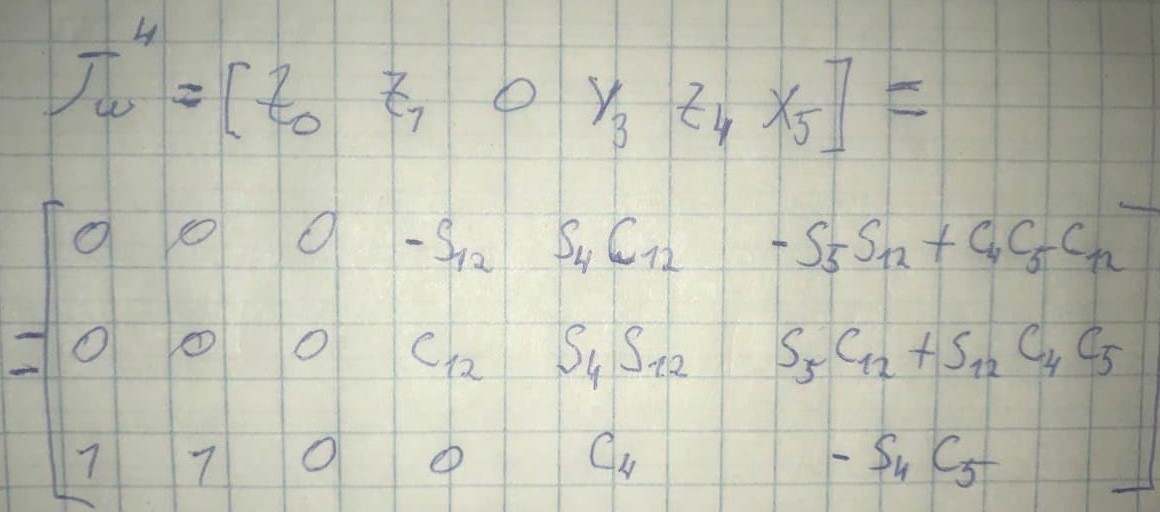 J_w^4 = [ Z_0 Z_1 0 Y_3 Z_4 X_5 ] =
0 0 0 -S_12 S_4 C_12 -S_5 S_12 + C_4 C_5 C_12
= 0 0 0 C_12 S_4 S_12 S_5 C_12 + S_12 C_4 C_5
1 1 0 0 C_4 - S_4 C_5